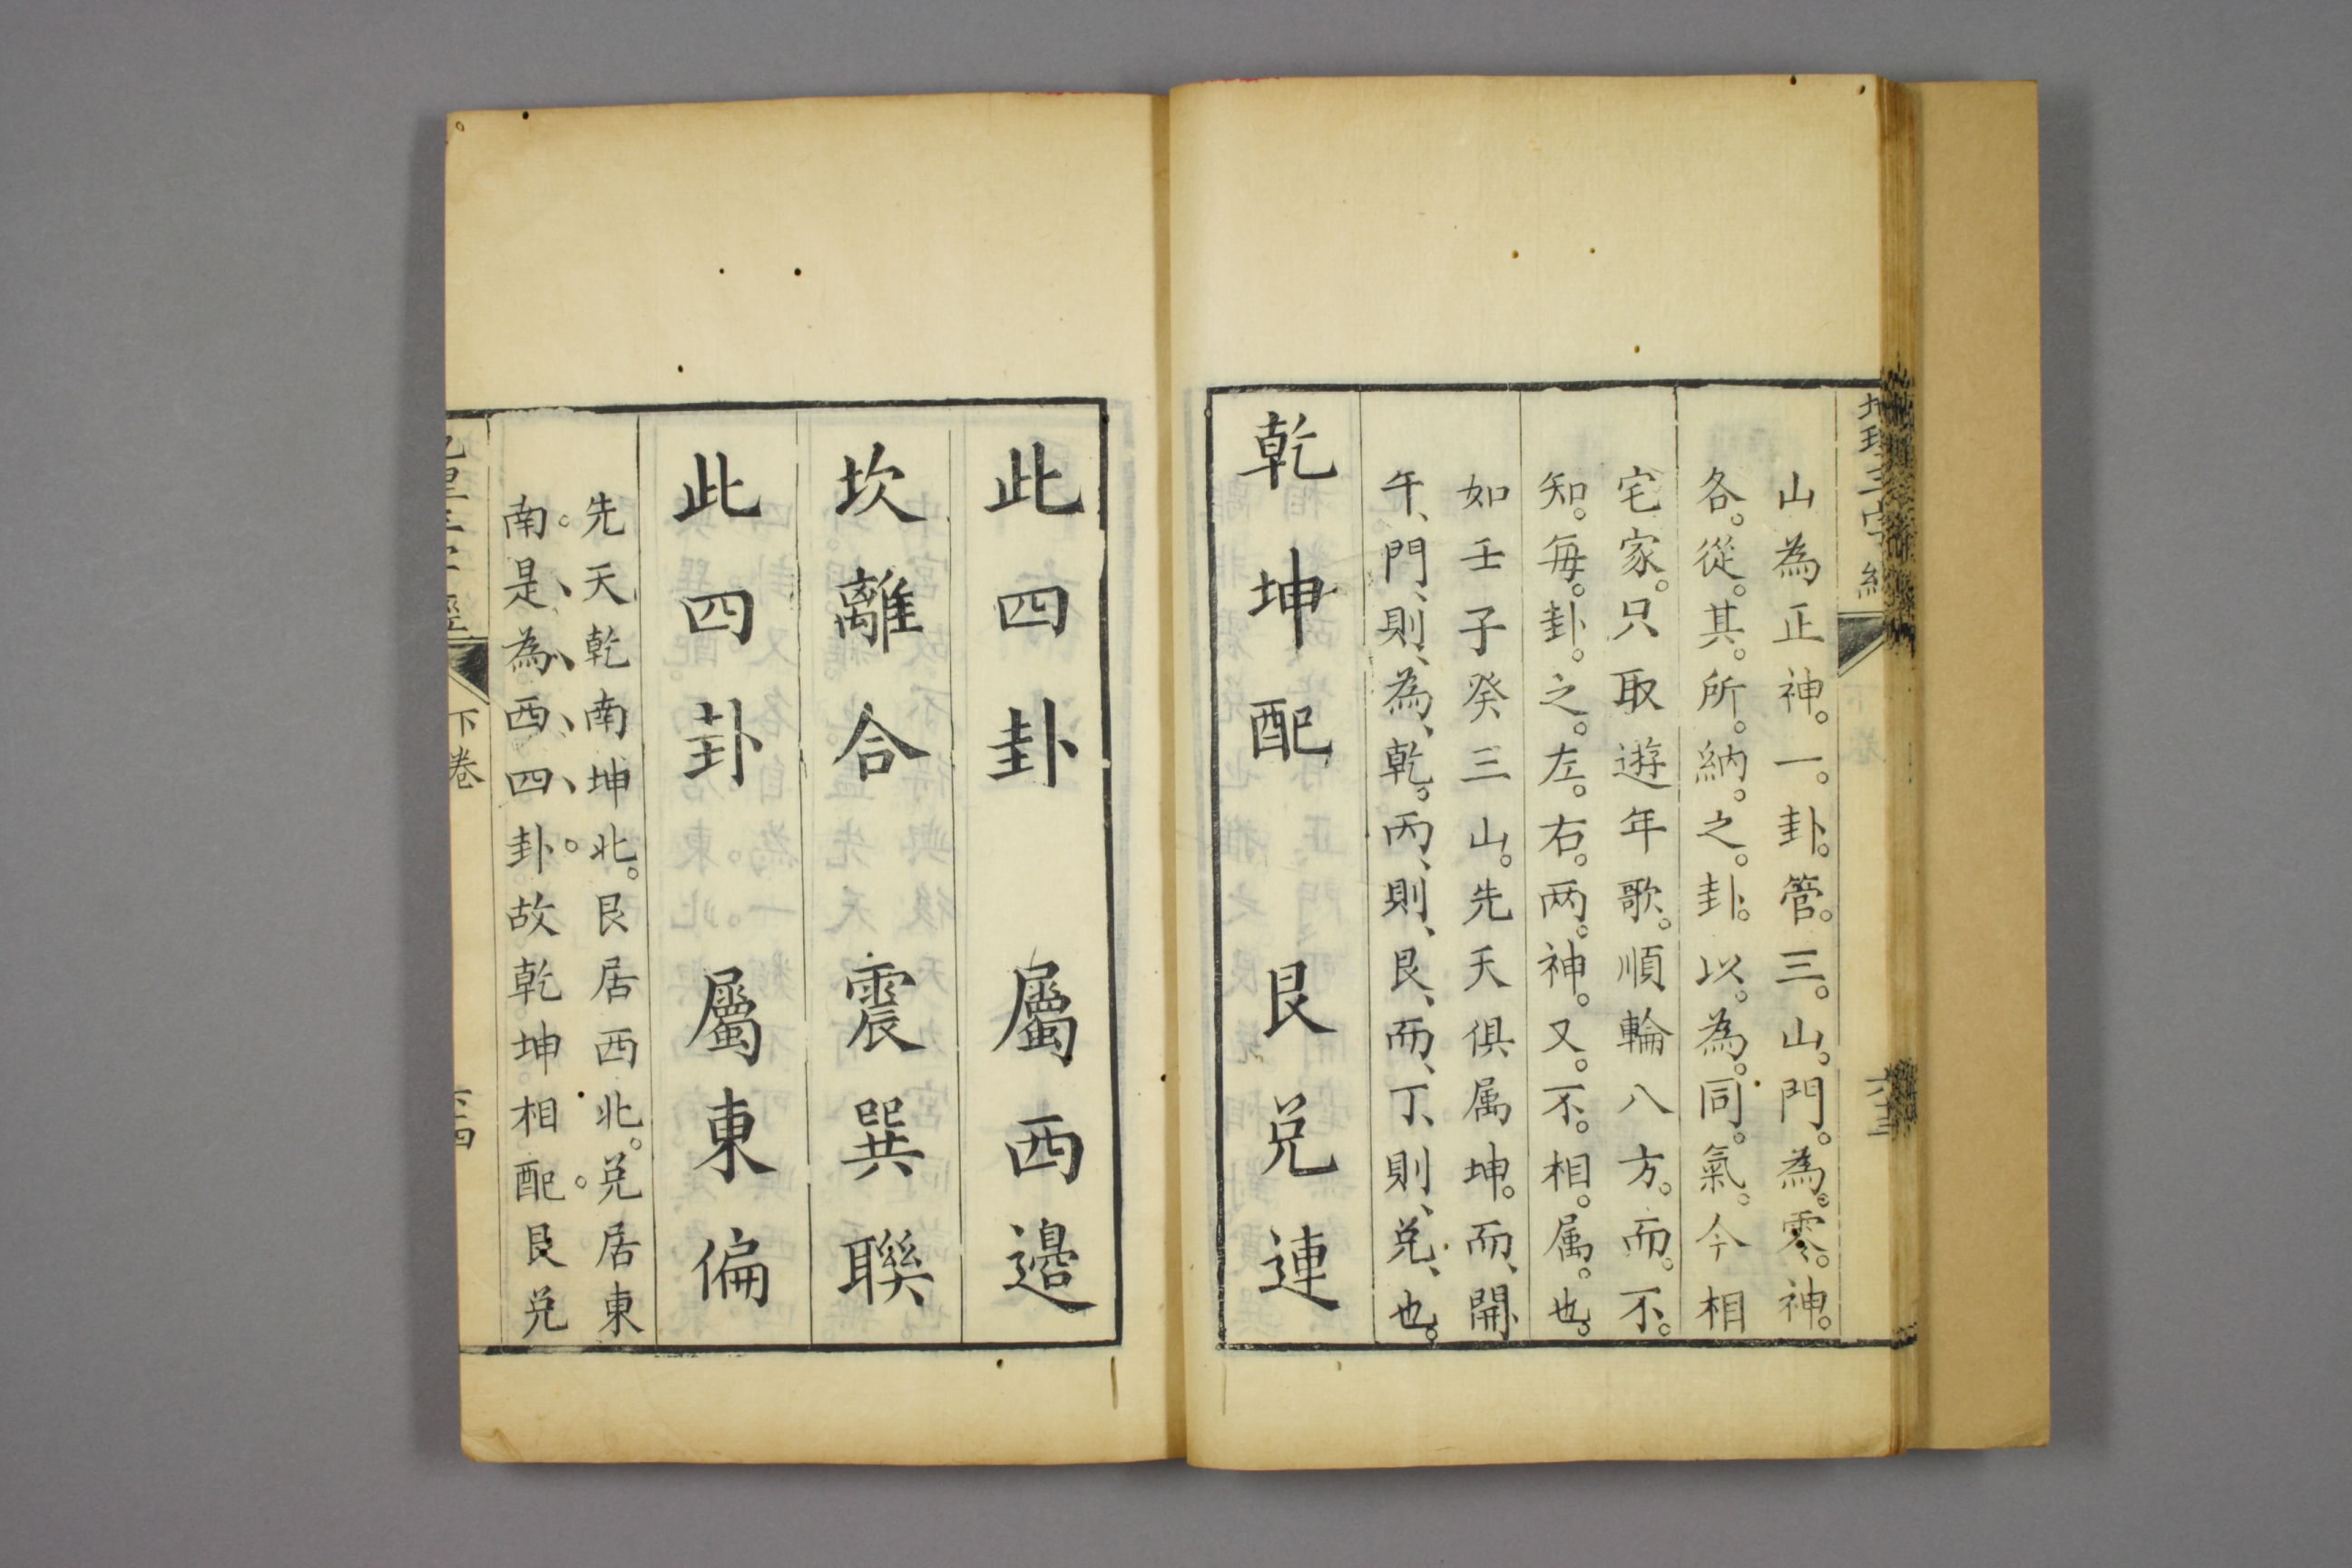 地理三字經
六十三
山為正神。一。卦。管。三。山。門。為。零。神。
各。從。其。所。納。之。卦。以。為。同。氣。今相
宅家。只取遊年歌。順輪八方。而。不。
知。每。卦。之。左。右。两。神。又。不。相。属。也。
如壬子癸三山。先天俱属坤。而、開、
午、門、則、為、乾。丙、則、艮、而、丁、則、兑、也。
乾坤配 艮兑連
此四卦 屬西邊
坎離合 震巽聯
此四卦 屬東偏
先天乾南坤北。艮居西北。兑居東
南。是、為、西、四、卦。故乾坤相配。艮兑
地理三字經 下卷 六十四